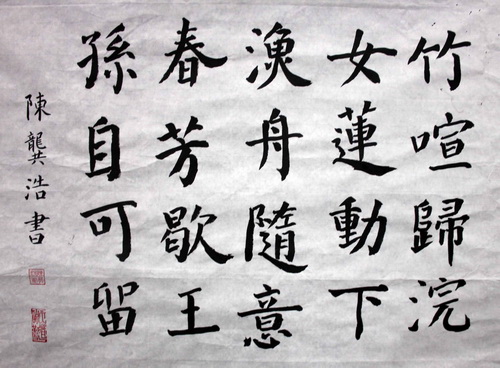 竹喧歸浣
女蓮動下
漁舟隨意
春芳歇王
孫自可留
陳龔浩書